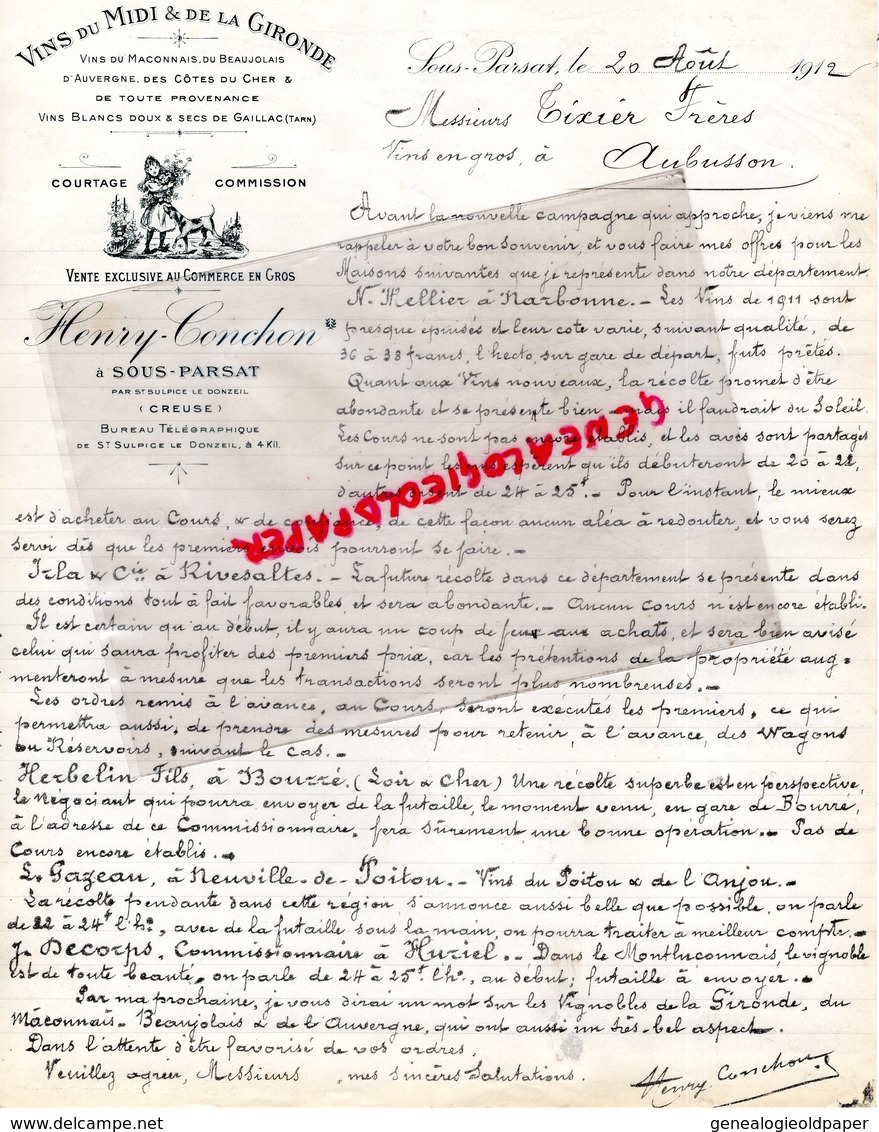 VINS DU MIDI & DE LA GIRONDE
VINS DU MACONNAIS, DU BEAUJOLAIS
D'AUVERGNE, DES CÔTES DU CHER &
DE TOUTE PROVENANCE
VINS BLANCS DOUX & SECS DE GAILLAC (TARN)
COURTAGE COMMISSION
VENTE EXCLUSIVE AU COMMERCE EN GROS
Henry-Conchon
à SOUS-PARSAT
PAR ST SULPICE LE DONZEIL
(CREUSE)
BUREAU TÉLÉGRAPHIQUE
DE ST SULPICE LE DONZEIL, à 4 Kil.
Sous-Parsat, le 20 Août 1912
Messieurs Tixier Frères
Vins en gros, à Aubusson.
Avant la nouvelle campagne qui approche, je viens me
rappeler à votre bon souvenir, et vous faire mes offres pour les
Maisons suivantes que je représente dans notre département.
N. Mellier à Narbonne. - Les Vins de 1911 sont
presque épuisés et leur cote varie, suivant qualité, de
36 à 38 francs, l'hecto, sur gare de départ, futs prêtés.
Quant aux Vins nouveaux, la récolte promet d'être
abondante et se présente bien - mais il faudrait du Soleil.
Les Cours ne sont pas encore établis, et les avis sont partagés
sur ce point les uns espèrent qu'ils débuteront de 20 à 22,
d'autres disent de 24 à 25f. - Pour l'instant, le mieux
est d'acheter au Cours, & de confiance, de cette façon aucun aléa à redouter, et vous serez
servi dès que les premiers envois pourront se faire. -
Irla & Cie à Rivesaltes. - La future récolte dans ce département se présente dans
des conditions tout à fait favorables, et sera abondante. - Aucun cours n'est encore établi.
Il est certain qu'au début, il y aura un coup de feu aux achats, et sera bien avisé
celui qui saura profiter des premiers prix, car les prétentions de la propriété aug=
menteront à mesure que les transactions seront plus nombreuses. -
Les ordres remis à l'avance, au Cours, seront exécutés les premiers, ce qui
permettra aussi, de prendre des mesures pour retenir, à l'avance, des Wagons
ou Réservoirs, suivant le cas. -
Herbelin Fils, à Bourré. (Loir & Cher) Une récolte superbe est en perspective,
le Négociant qui pourra envoyer de la futaille, le moment venu, en gare de Bourré,
à l'adresse de ce Commissionnaire, fera sûrement une bonne opération. - Pas de
Cours encore établis. -
L. Gazeau, à Neuville-de-Poitou. - Vins du Poitou & de l'Anjou. -
La récolte pendante dans cette région s'annonce aussi belle que possible, on parle
de 22 à 24f l'ho, avec de la futaille sous la main, on pourra traiter à meilleur compte. -
J. Decorps, Commissionnaire à Huriel. - Dans le Montluçonnais, le vignoble
est de toute beauté, on parle de 24 à 25f l'ho, au début; futaille à envoyer. -
Par ma prochaine, je vous dirai un mot sur les Vignobles de la Gironde, du
Mâconnais - Beaujolais & de l'Auvergne, qui ont aussi un très-bel aspect. -
Dans l'attente d'être favorisé de vos ordres,
Veuillez agréer, Messieurs, mes sincères Salutations.
Henry-Conchon
GENEALOGIEOLDPAPER
www.delcampe.net
genealogieoldpaper